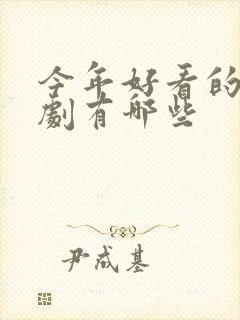 今年好看的
劇有哪些
尹成基